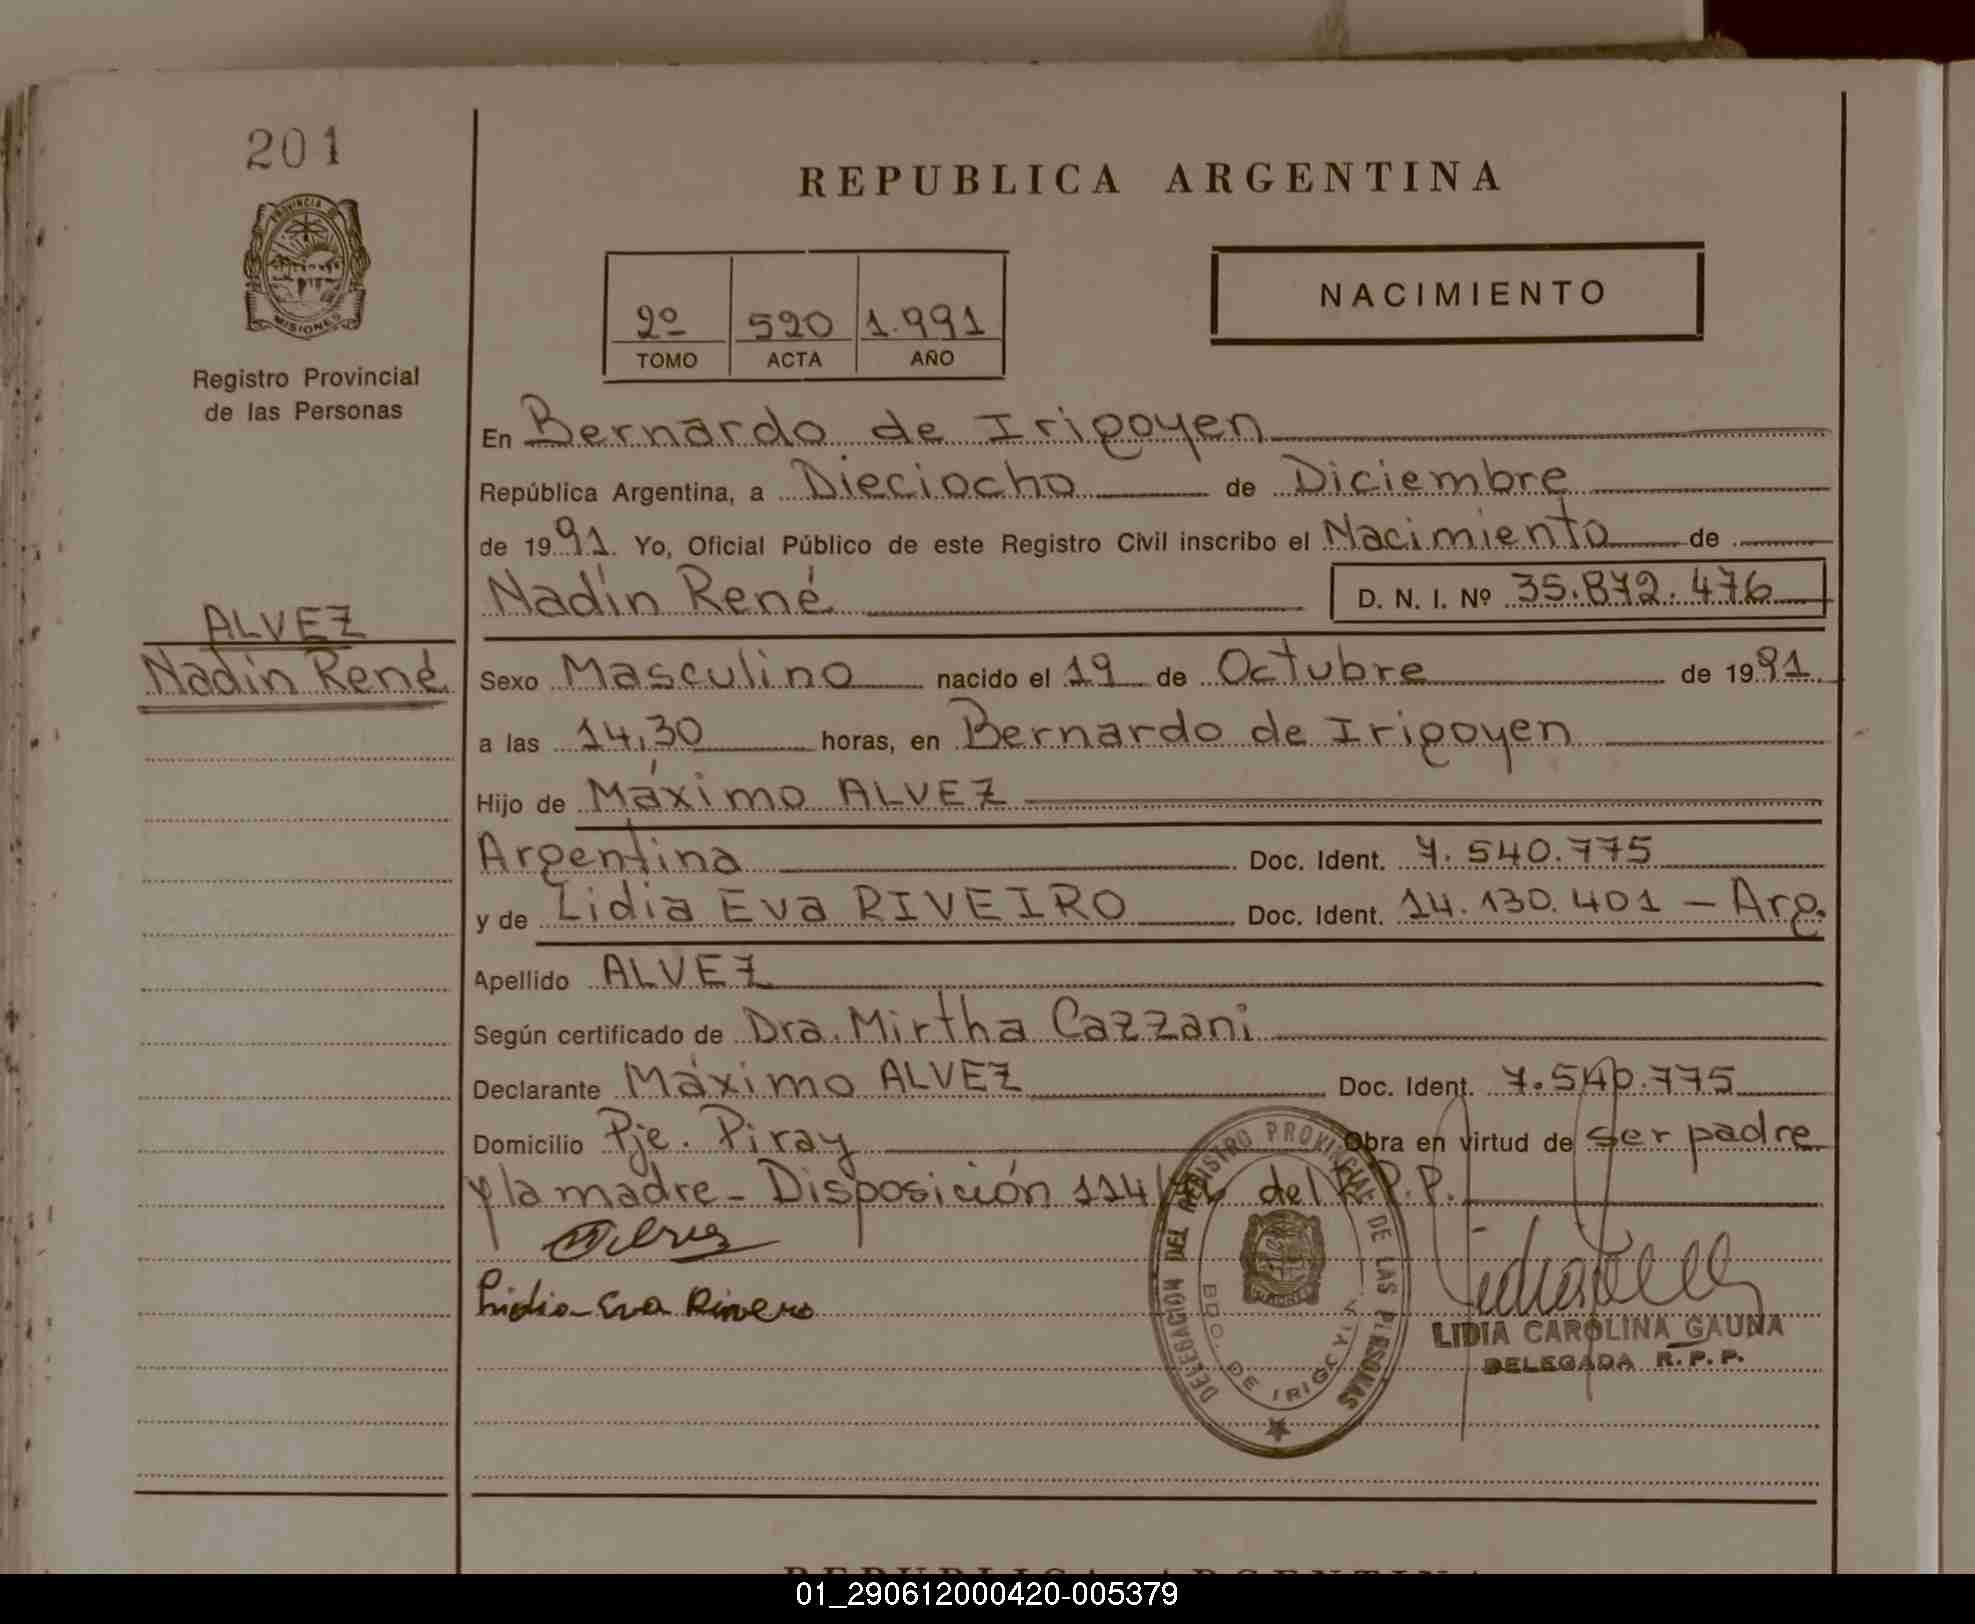 201
REPUBLICA ARGENTINA
PROVINCIA DE
MISIONES
NACIMIENTO
2º 520 1.991
TOMO ACTA AÑO
Registro Provincial
de las Personas
En Bernardo de Irigoyen
República Argentina, a Dieciocho de Diciembre
de 1991. Yo, Oficial Público de este Registro Civil inscribo el Nacimiento de
Nadín René D. N. I. Nº 35.872.476
ALVEZ
Nadín René
Sexo Masculino nacido el 19 de Octubre de 1991
a las 14,30 horas, en Bernardo de Irigoyen
Hijo de Máximo ALVEZ
Argentina Doc. Ident. 7.540.775
y de Lidia Eva RIVEIRO Doc. Ident. 14.130.401 - Arg.
Apellido ALVEZ
Según certificado de Dra. Mirtha Cazzani
Declarante Máximo ALVEZ Doc. Ident. 7.540.775
Domicilio Pje. Piray Obra en virtud de ser padre
y la madre - Disposición 114/ del R.P.P.
Lidia Eva Rivero
DELEGACION DEL REGISTRO PROVINCIAL DE LAS PERSONAS
BDO. DE IRIGOYEN
LIDIA CAROLINA GAUNA
DELEGADA R.P.P.
REPUBLICA ARGENTINA
01_290612000420-005379